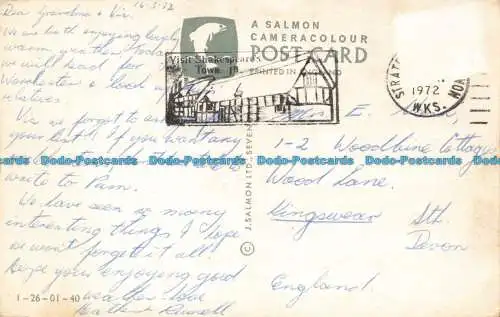 Dear Grandma & Viv. 16-5-72
We are both enjoying lovely
warm weather. Today
we will head for
& look up
relatives.
We forgot to ask
your list if you want any
write to Pam.
We have seen so many
interesting things I hope
we wont forget it all!
Hope your enjoying good
weather. love
Heather & Russell
1-26-01-40
A SALMON
CAMERACOLOUR
POST CARD
PRINTED IN ENGLAND
Visit Shakespeare's
Town
© J. SALMON LTD., SEVEN
1972
WKS.
E.
1-2 Woodbine Cottages
Wood Lane,
Kingswear Sth.
Devon
England.
Dodo-Postcards Dodo-Postcards Dodo-Postcards Dodo-Postcards Dodo-Postcards Dodo-Postcards